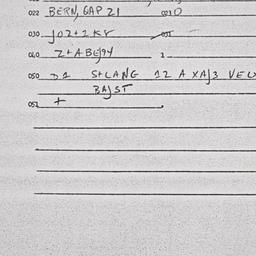 022 BERN, GAP 21 023 0
030 J02+2 KR 031
040 Z+A BEJ94 1
050 21 S+LANG 12 A XAJ3 VEU
BAJST
051 +